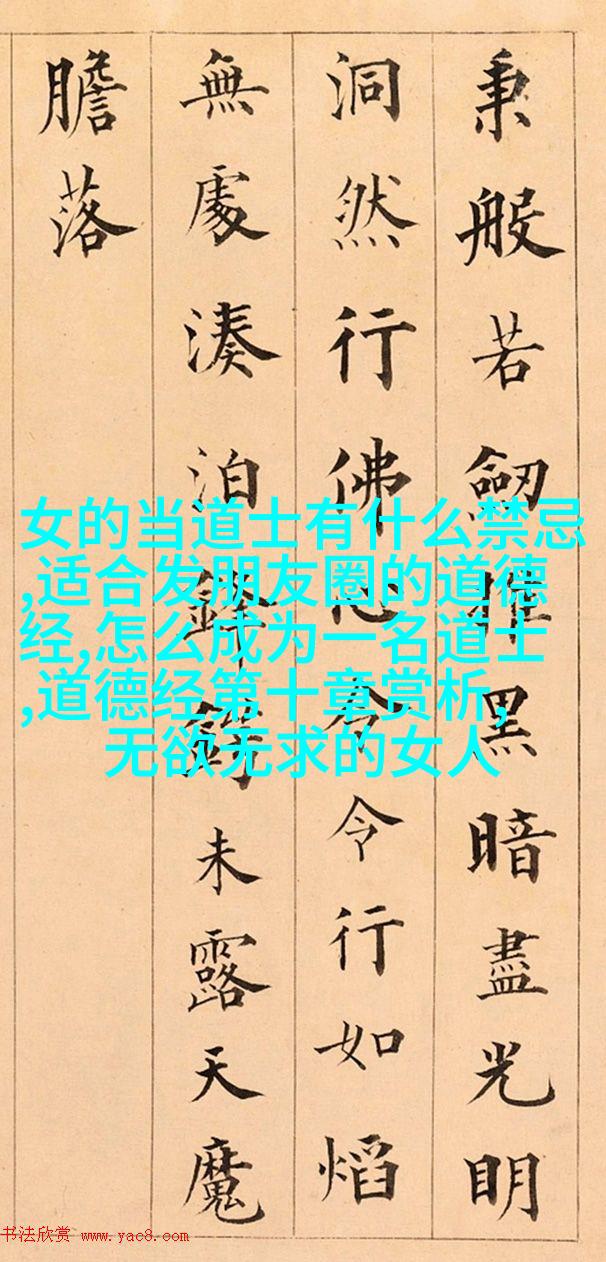 秉般若劒摧黑暗盡光明
洞然行佛令令行如焰
無處湊泊鋒鍔未露天魔
膽落
女的当道士有什么禁忌
,适合发朋友圈的道德
经,怎么成为一名道士
,道德经第十章赏析,
无欲无求的女人
书法欣赏 www.yac8.com